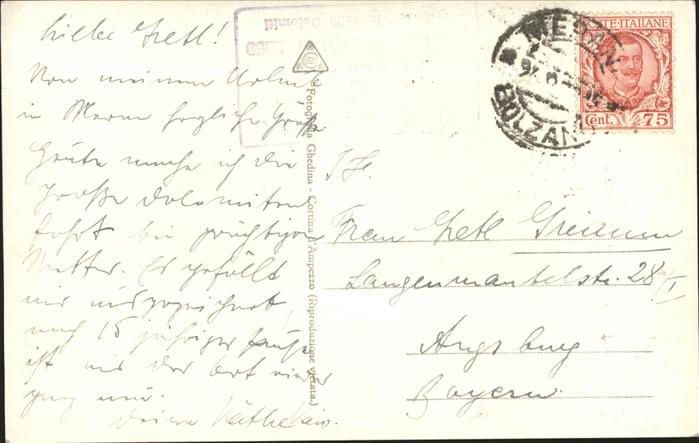 Liebe Gretl!
Von meinem Urlaub
in Meran herzliche Grüße
Heute mache ich die
große Dolomiten
fahrt bei prächtigem
Wetter. Es gefällt
mir ausgezeichnet,
nach 15 jähriger Pause
ist mir der Ort wieder
ganz neu.
Deine Käthe
Große Via delle Dolomiti
Fotografia Ghedina - Cortina d'Ampezzo (Riproduzione vietata.)
MERAN
BOLZANO
POSTE·ITALIANE
Cent. 75
Frau Gretl
Langenmantelstr. 28/I
Augsburg
Bayern